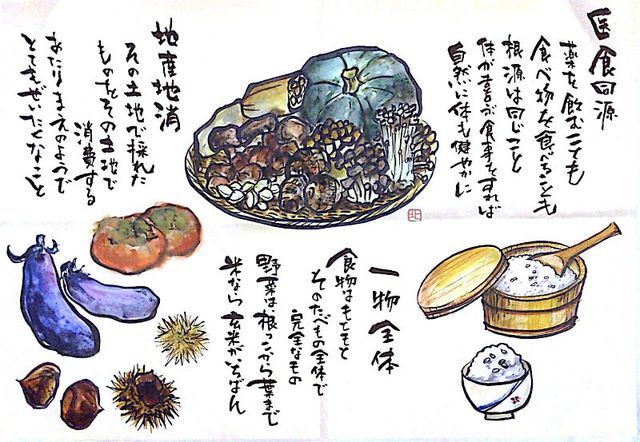 医食同源
薬を飲むことも
食べ物を食べることも
根源は同じこと
体が喜ぶ食事をすれば
自然に体も健やかに
地産地消
その土地で採れた
ものをその土地で
消費する
あたりまえのようで
とてもぜいたくなこと
一物全体
食物はもともと
そのたべもの全体で
完全なもの
野菜は、根っこから葉まで
米なら玄米がいちばん